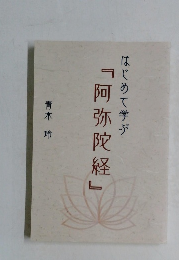 はじめて学ぶ
『阿弥陀経』
青木 玲